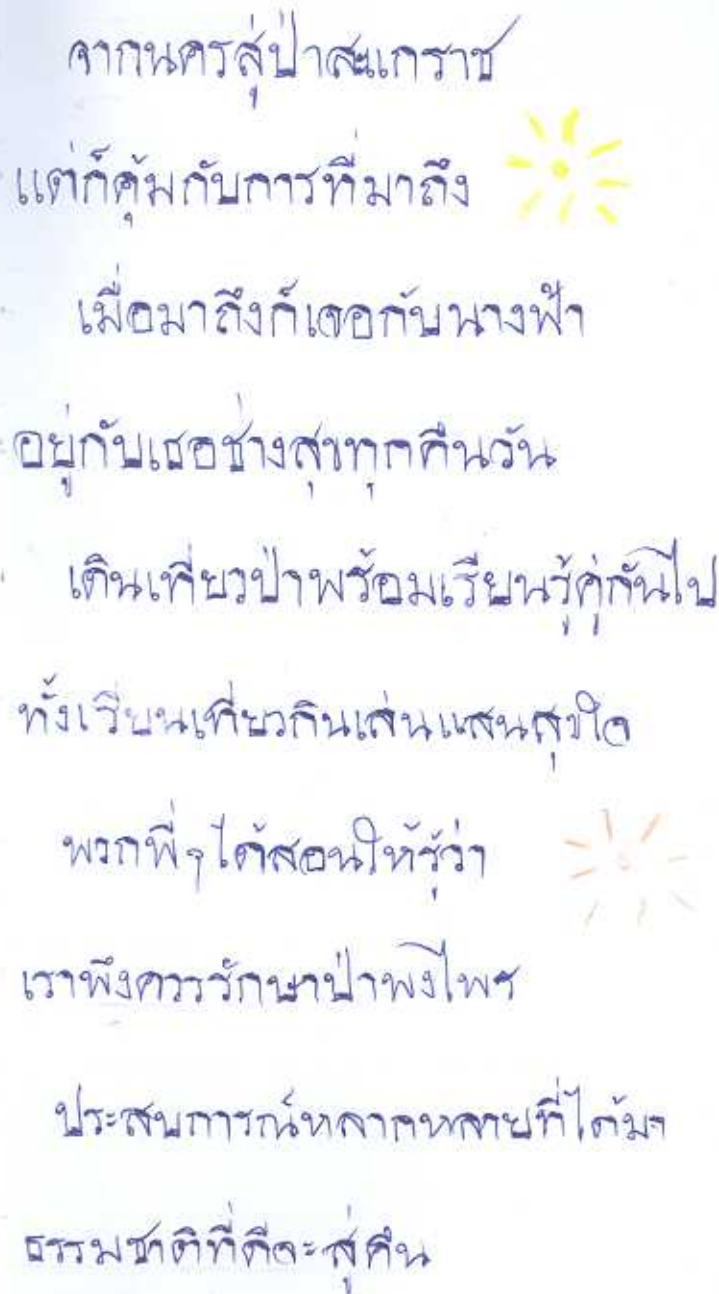 จากนครสู่ป่าสะแกราช
แต่ก็คุ้มกับการที่มาถึง
เมื่อมาถึงก็เจอกับนางฟ้า
อยู่กับเธอช่างสุขทุกคืนวัน
เดินเที่ยวป่าพร้อมเรียนรู้คู่กันไป
ทั้งเรียนเที่ยวกินเล่นแสนสุขใจ
พวกพี่ๆได้สอนให้รู้ว่า
เราพึงควรรักษาป่าพงไพร
ประสบการณ์หลากหลายที่ได้มา
ธรรมชาติที่ดีจะสู่คืน